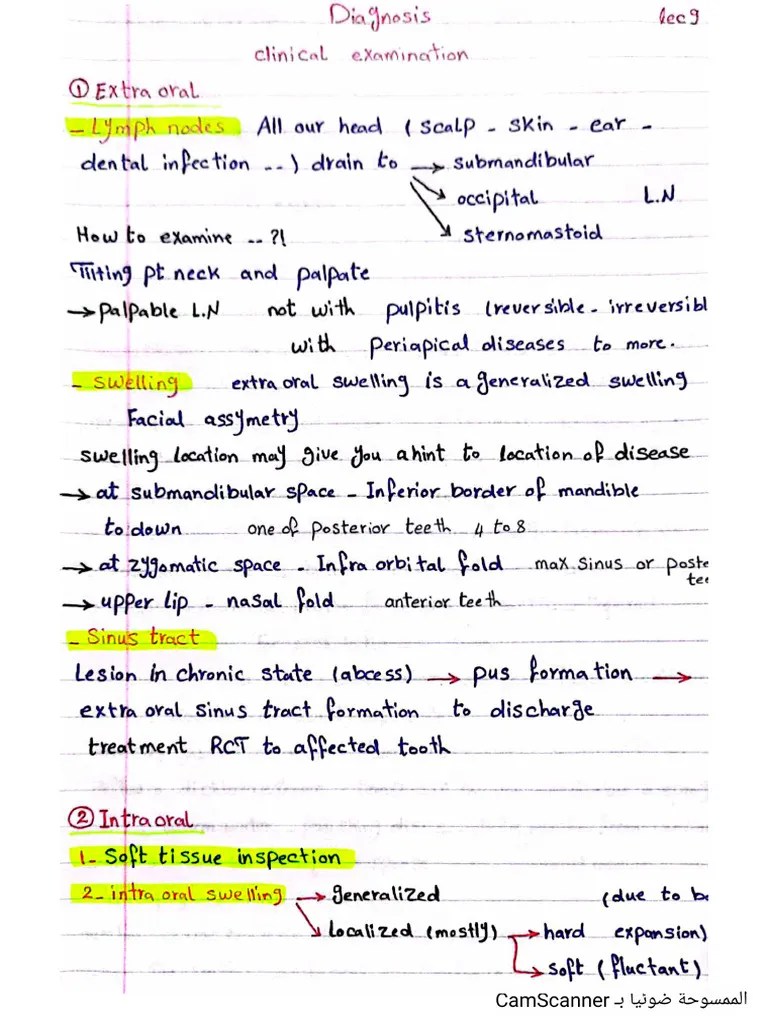 Diagnosis lec 9
clinical examination
① Extra oral
- Lymph nodes All our head ( scalp - skin - ear -
dental infection -- ) drain to → submandibular
occipital L.N
sternomastoid
How to examine -- ?!
Tilting pt neck and palpate
→ palpable L.N not with pulpitis (reversible - irreversibl
with periapical diseases to more.
- swelling extra oral swelling is a generalized swelling
Facial assymetry
swelling location may give you a hint to location of disease
→ at submandibular space - Inferior border of mandible
to down one of posterior teeth 4 to 8
→ at zygomatic space - Infra orbital fold max sinus or poste
tee
→ upper lip - nasal fold anterior teeth
- Sinus tract
Lesion in chronic state (abcess) → pus formation →
extra oral sinus tract formation to discharge
treatment RCT to affected tooth
② Intra oral
1- Soft tissue inspection
2- intra oral swelling → generalized (due to bo
↘ Localized (mostly) → hard expansion)
↳ soft (fluctant)
الممسوحة ضوئيا بـ CamScanner